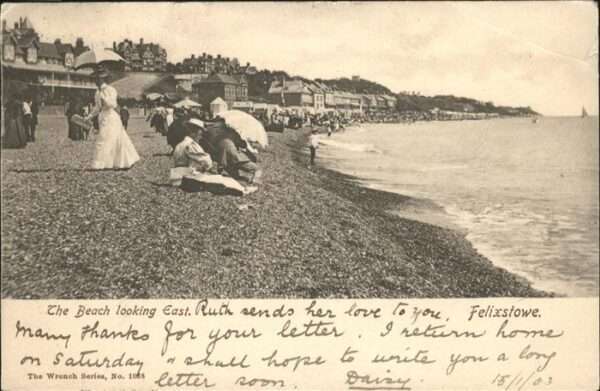 The Beach looking East. Ruth sends her love to you, Felixstowe.
Many thanks for your letter. I return home
on Saturday & shall hope to write you a long
The Wrench Series, No. letter soon. Daisy. 03